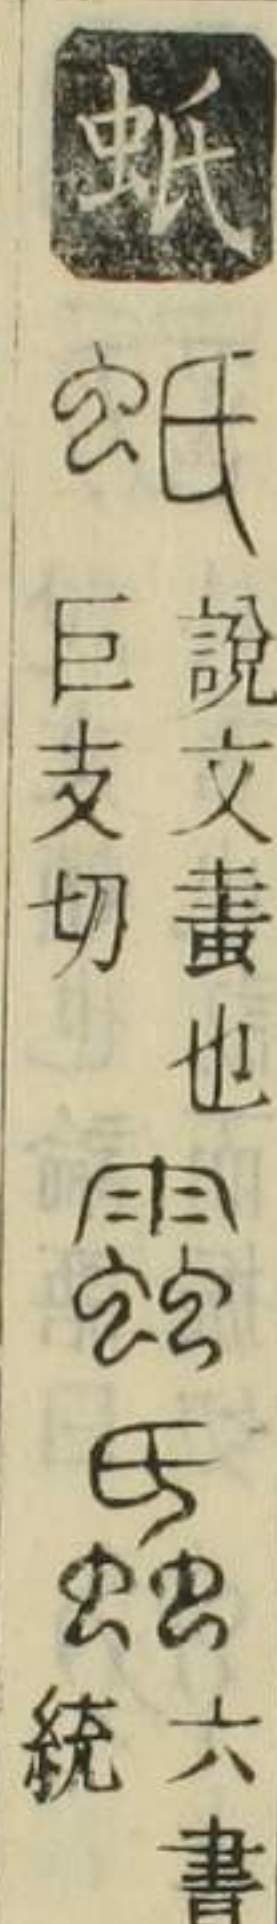 蚔
說文畫也
巨支切
六書
統